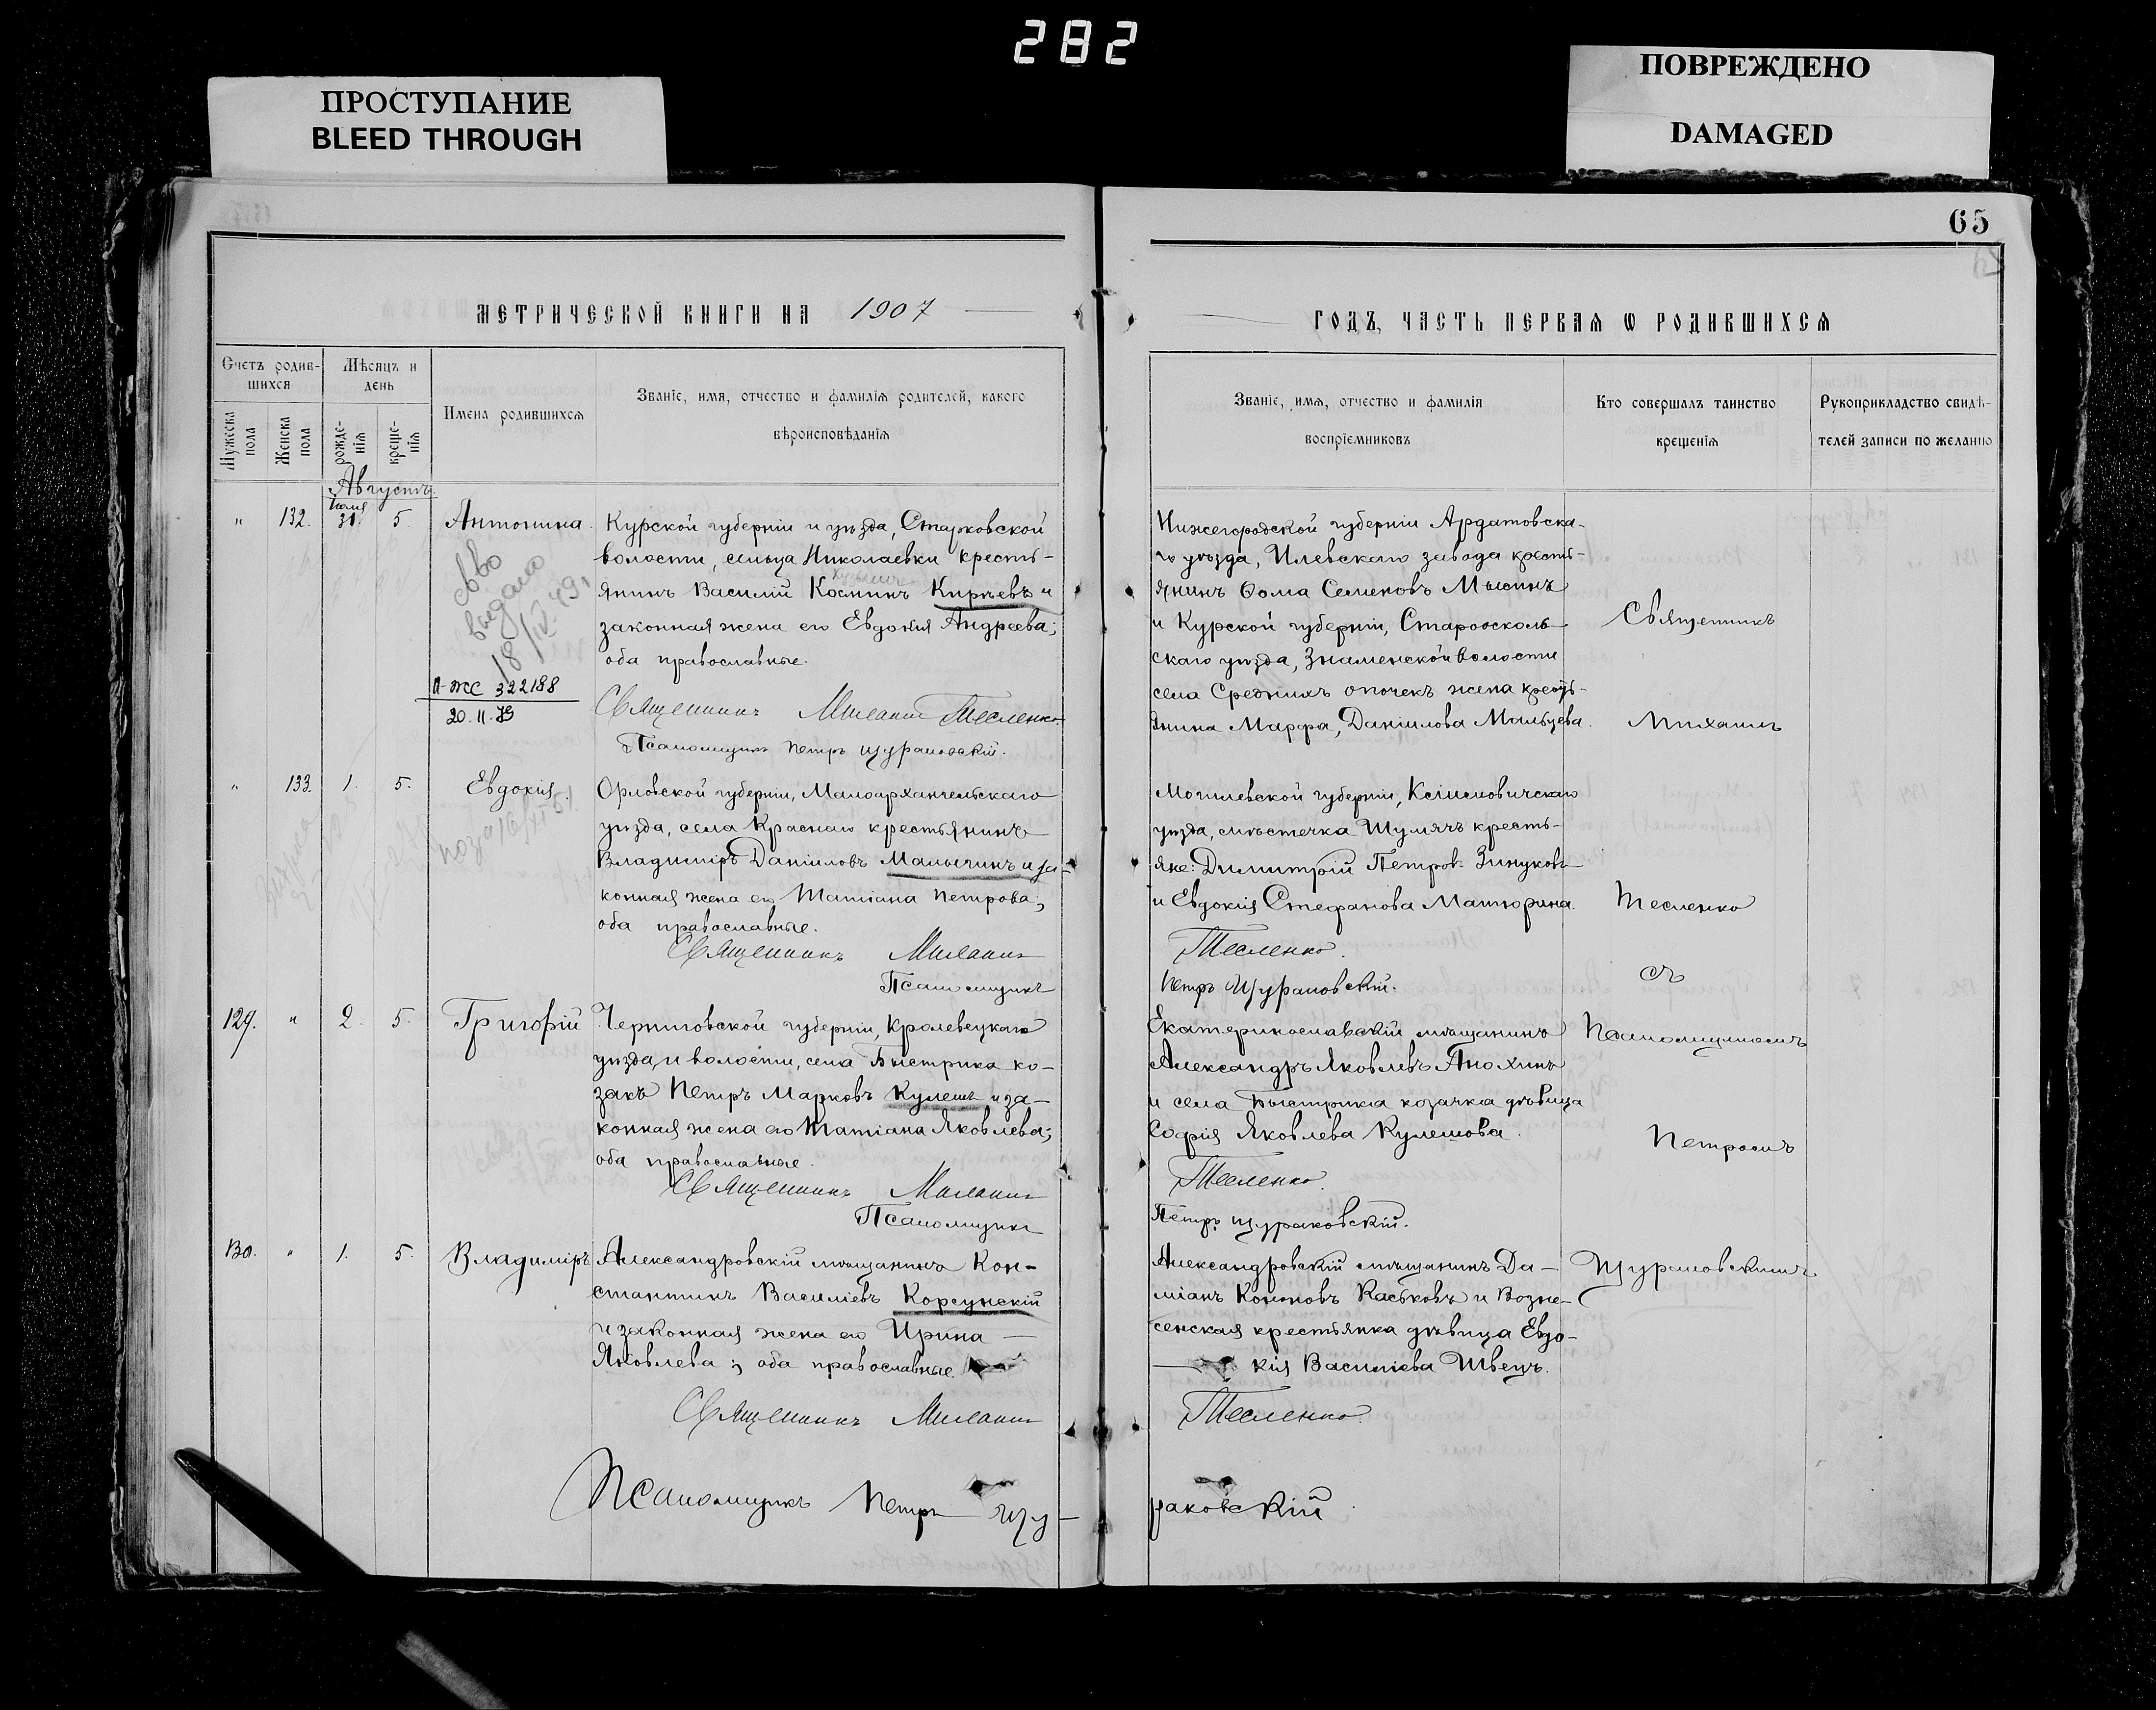 282
ПРОСТУПАНИЕ
BLEED THROUGH
ПОВРЕЖДЕНО
DAMAGED
65
МЕТРИЧЕСКОЙ КНИГИ НА 1907
ГОДЪ, ЧАСТЬ ПЕРВАЯ Ѡ РОДИВШИХСЯ
Счетъ родив-
шихся
Мужеска
пола
Женска
пола
Мѣсяцъ и
день
рожде-
нія
креще-
нія
Имена родившихся
Званіе, имя, отчество и фамилія родителей, какого
вѣроисповѣданія
Званіе, имя, отчество и фамилія
воспріемниковъ
Кто совершалъ таинство
крещенія
Рукоприкладство свидѣ-
телей записи по желанію
Августъ
Іюля
" 132. 31. 5. Антонина.
св-во
выдано
18/IV 49
п-жс 322188
20.11.79
Курской губерніи и уѣзда, Старковской
волости, сельца Николаевки кресть-
янинъ Василій Космин Кирѣевъ и
законная жена его Евдокія Андреева;
оба православные.
Священникъ Михаилъ Тесленко
Псаломщикъ Петръ Щураковскій.
Нижегородской губерніи Ардатовска-
го уѣзда, Илевскаго завода кресть-
янинъ Ѳома Семеновъ Мысинъ
и Курской губерніи, Староосколь-
скаго уѣзда, Знаменской волости
села Среднихъ опочекъ жена кресть-
янина Марфа Даніилова Мальцева.
" 133. 1. 5. Евдокія.
Орловской губерніи, Малоархангельскаго
уѣзда, села Краснаго крестьянинъ
Владиміръ Даніиловъ Малычинъ и за-
конная жена его Татіана Петрова;
оба православные.
Священникъ Михаилъ
Псаломщикъ
Могилевской губерніи, Климовичскаго
уѣзда, мѣстечка Шумячъ кресть-
яне: Димитрій Петров. Зинуковъ
и Евдокія Стефанова Матюрина.
Тесленко.
Петръ Щураковскій.
129. " 2. 5. Григорій
Черниговской губерніи, Кролевецкаго
уѣзда, и волости, села Быстрика ко-
закъ Петръ Марковъ Кулешъ и за-
конная жена его Татіана Яковлева;
оба православные.
Священникъ Михаилъ
Псаломщикъ
Екатеринославскій мѣщанинъ
Александръ Яковлевъ Анохинъ
и села Быстрика козачка дѣвица
Софія Яковлева Кулешова.
Тесленко.
Петръ Щураковскій.
130. " 1. 5. Владиміръ
Александровскій мѣщанинъ Кон-
стантинъ Василіевъ Корсунскій
и законная жена его Ирина
Яковлева; оба православные.
Священникъ Михаилъ
Псаломщикъ Петръ Щу-
Александровскій мѣщанинъ Да-
міанъ Кононовъ Каськовъ и Возне-
сенская крестьянка дѣвица Евдо-
кія Василіева Швецъ.
Тесленко.
раковскій
Священникъ
Михаилъ
Тесленко
съ
Псаломщикомъ
Петромъ
Щураковскимъ